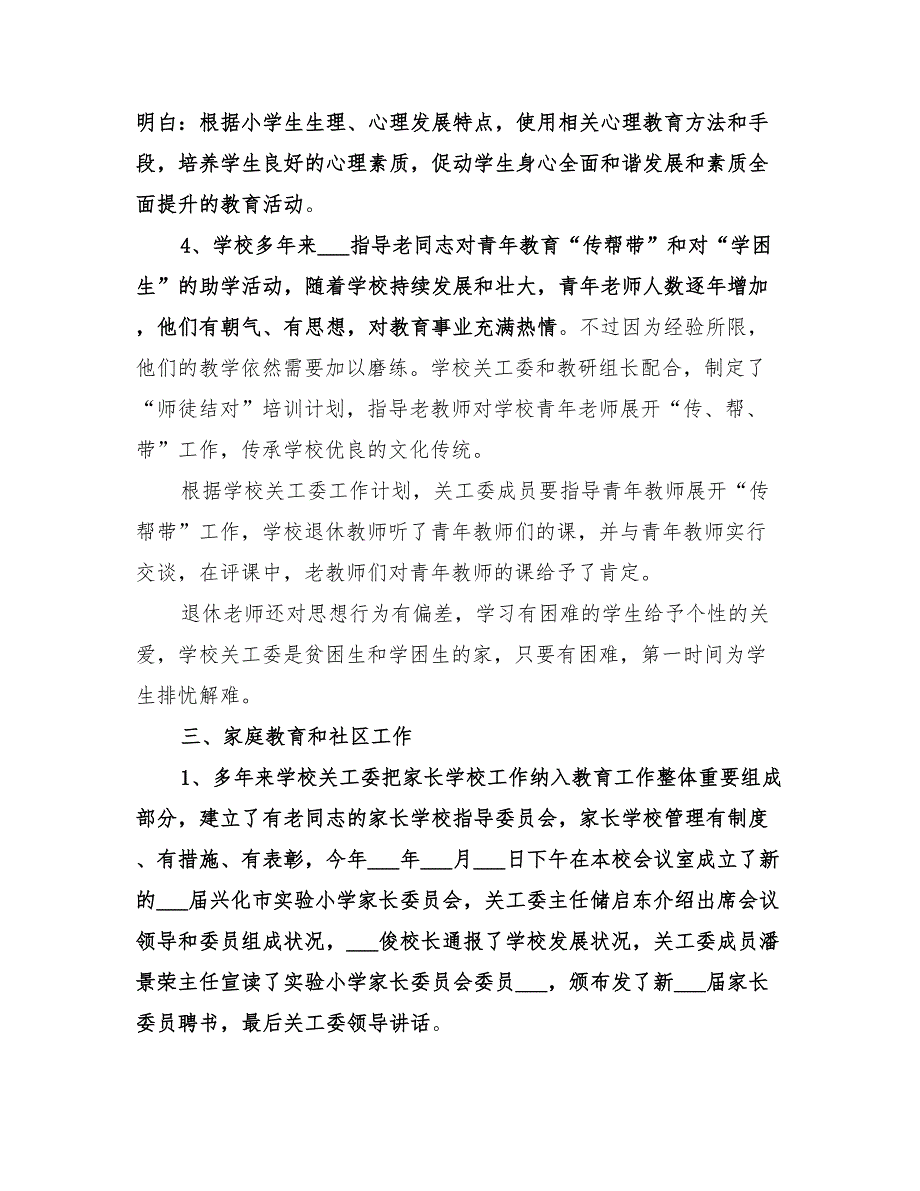 明白：根据小学生生理、心理发展特点，使用相关心理教育方法和手
段，培养学生良好的心理素质，促动学生身心全面和谐发展和素质全
面提升的教育活动。
4、学校多年来___指导老同志对青年教育“传帮带”和对“学困
生”的助学活动，随着学校持续发展和壮大，青年老师人数逐年增加
，他们有朝气、有思想，对教育事业充满热情。不过因为经验所限，
他们的教学依然需要加以磨练。学校关工委和教研组长配合，制定了
“师徒结对”培训计划，指导老教师对学校青年老师展开“传、帮、
带”工作，传承学校优良的文化传统。
根据学校关工委工作计划，关工委成员要指导青年教师展开“传
帮带”工作，学校退休教师听了青年教师们的课，并与青年教师实行
交谈，在评课中，老教师们对青年教师的课给予了肯定。
退休老师还对思想行为有偏差，学习有困难的学生给予个性的关
爱，学校关工委是贫困生和学困生的家，只要有困难，第一时间为学
生排忧解难。
三、家庭教育和社区工作
1、多年来学校关工委把家长学校工作纳入教育工作整体重要组成
部分，建立了有老同志的家长学校指导委员会，家长学校管理有制度
、有措施、有表彰，今年___年___月___日下午在本校会议室成立了新
的___届兴化市实验小学家长委员会，关工委主任储启东介绍出席会议
领导和委员组成状况，___俊校长通报了学校发展状况，关工委成员潘
景荣主任宣读了实验小学家长委员会委员___，颁布发了新___届家长
委员聘书，最后关工委领导讲话。